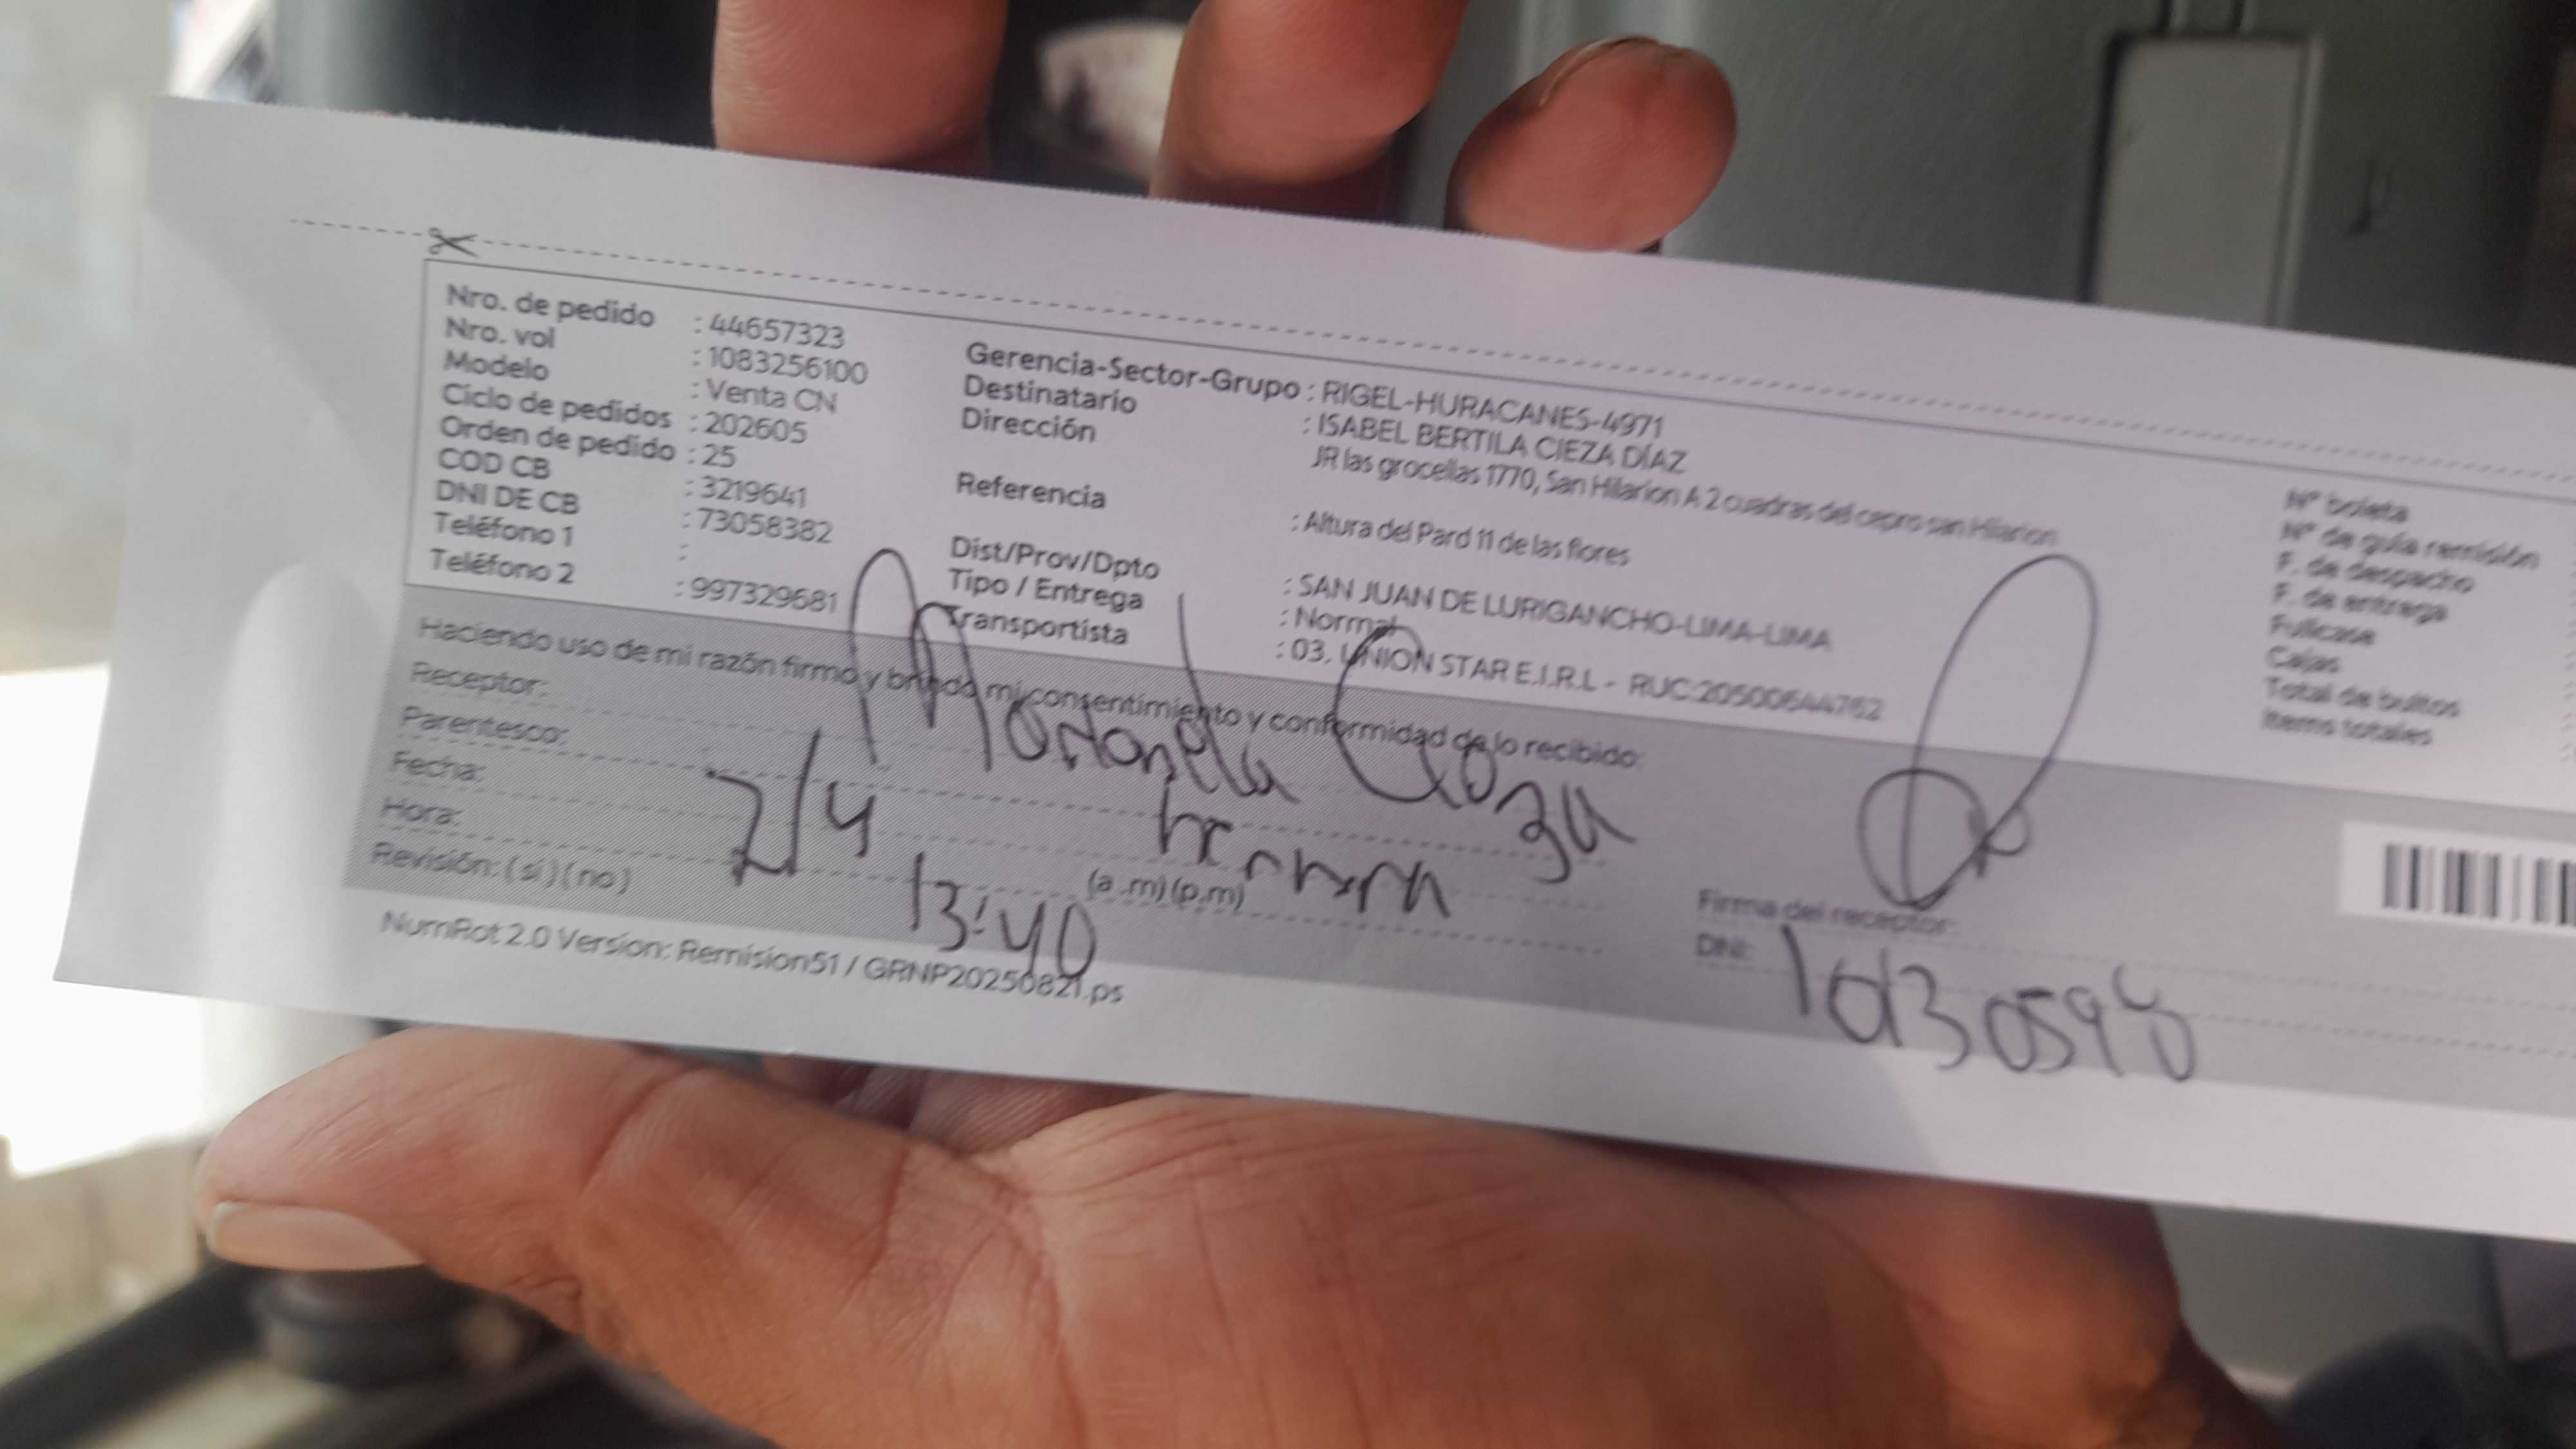 Nro. de pedido : 44657323
Nro. vol : 1083256100
Modelo : Venta CN
Ciclo de pedidos : 202605
Orden de pedido : 25
COD CB : 3219641
DNI DE CB : 73058382
Teléfono 1 :
Teléfono 2 : 997329681
Gerencia-Sector-Grupo : RIGEL-HURACANES-4971
Destinatario : ISABEL BERTILA CIEZA DÍAZ
Dirección JR las grocellas 1770, San Hilarion A 2 cuadras del cepro san Hilarion
Referencia : Altura del Pard 11 de las flores
Dist/Prov/Dpto : SAN JUAN DE LURIGANCHO-LIMA-LIMA
Tipo / Entrega : Normal
Transportista : 03. UNION STAR E.I.R.L - RUC:20500644762
N° boleta
N° de guía remisión
F. de despacho
F. de entrega
Fullcase
Cajas
Total de bultos
Items totales
Haciendo uso de mi razón firmo y brindo mi consentimiento y conformidad de lo recibido:
Receptor:
Parentesco:
Fecha: 2/4
Hora: 13:40 (a.m)(p.m)
Revisión: (si)(no)
Firma del receptor:
DNI:
NumRot 2.0 Version: Remision51 / GRNP20250821.ps